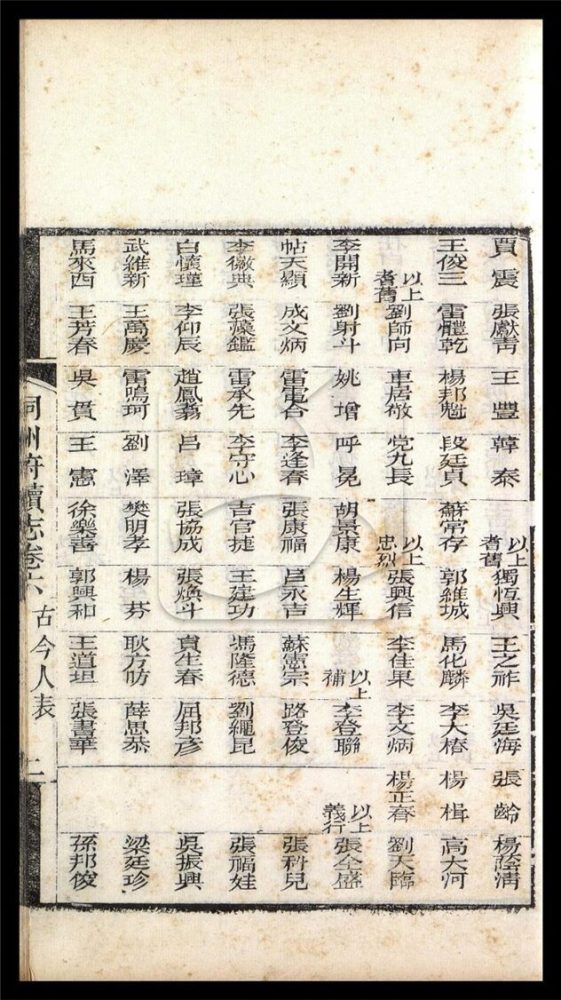 賈震 張獻青 王豐 韓泰 以上耆舊 獨恆興 王之祚 吳廷海 張齡 楊蔭清
王俊三 雷體乾 楊邦魁 段廷貢 常存 郭維城 馬化麟 李大椿 楊楫 高大河
以上耆舊 劉師向 車居敬 党九長 以上忠烈 張興信 李佳果 李文炳 楊正春 劉天臨
李開新 劉射斗 姚增 呼冕 胡景康 楊生輝 以上補 李登聯 以上義行 張全盛
帖天顯 成文炳 雷電合 李逢春 張康福 呂永吉 蘇憲宗 路登俊 張科兒
李徽典 張藻鑑 雷承先 李守心 吉官捷 王建功 馮隆德 劉繩昆 張福娃
白懷瑾 李仰辰 趙鳳翥 呂璋 張協成 張煥斗 員生春 屈邦彥 吳振興
武維新 王萬慶 雷鳴珂 劉澤 樊明孝 楊芬 耿方昉 薛思恭 梁廷珍
馬來西 王芳春 吳貫 王憲 徐樂善 郭興和 王道坦 張書華 孫邦俊
同州府續志卷六 古今人表 二